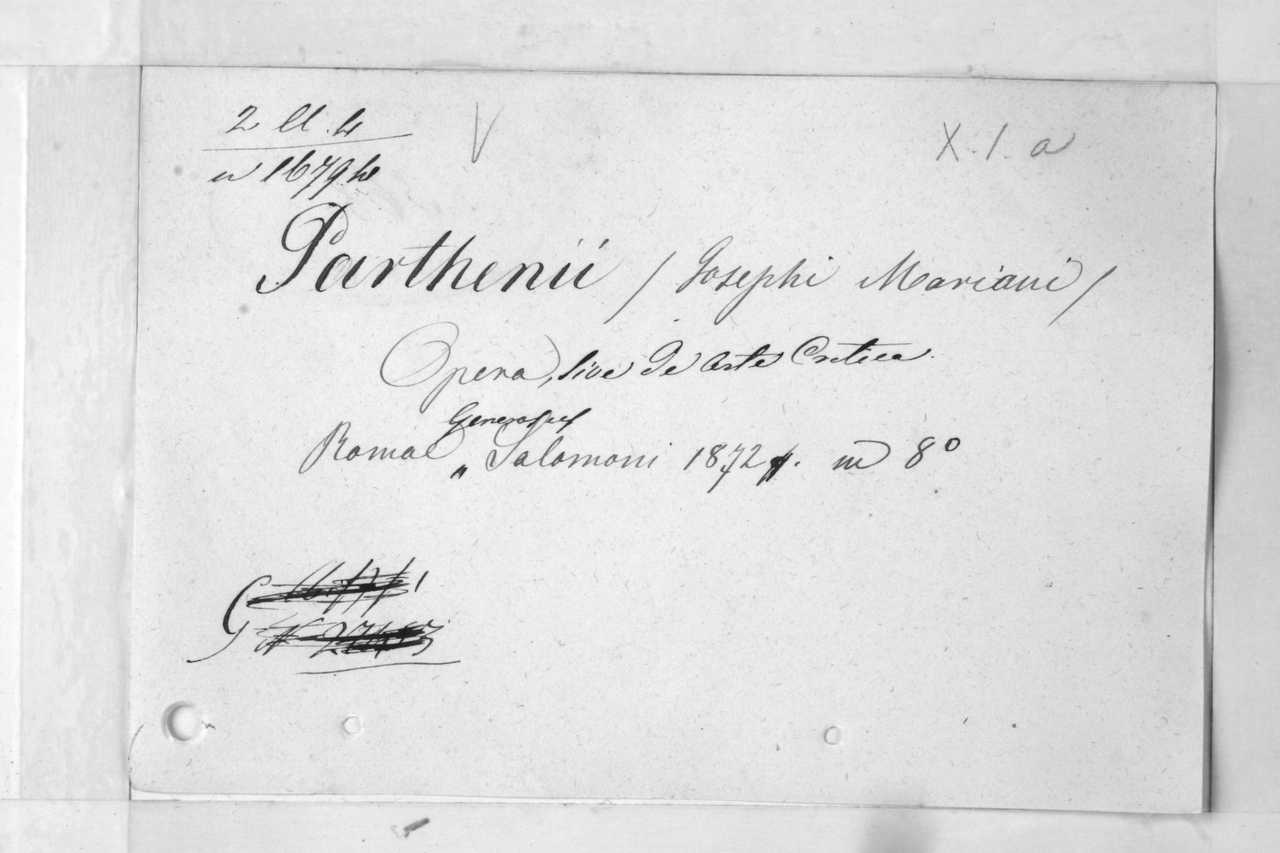 2 ll. 4
V
X. 1. a
u 1679.4
Parthenii / Josephi Mariani /
Opera, sive De Arte Critica.
Generosus
Romae „ Salomoni 1872. in 8°
G